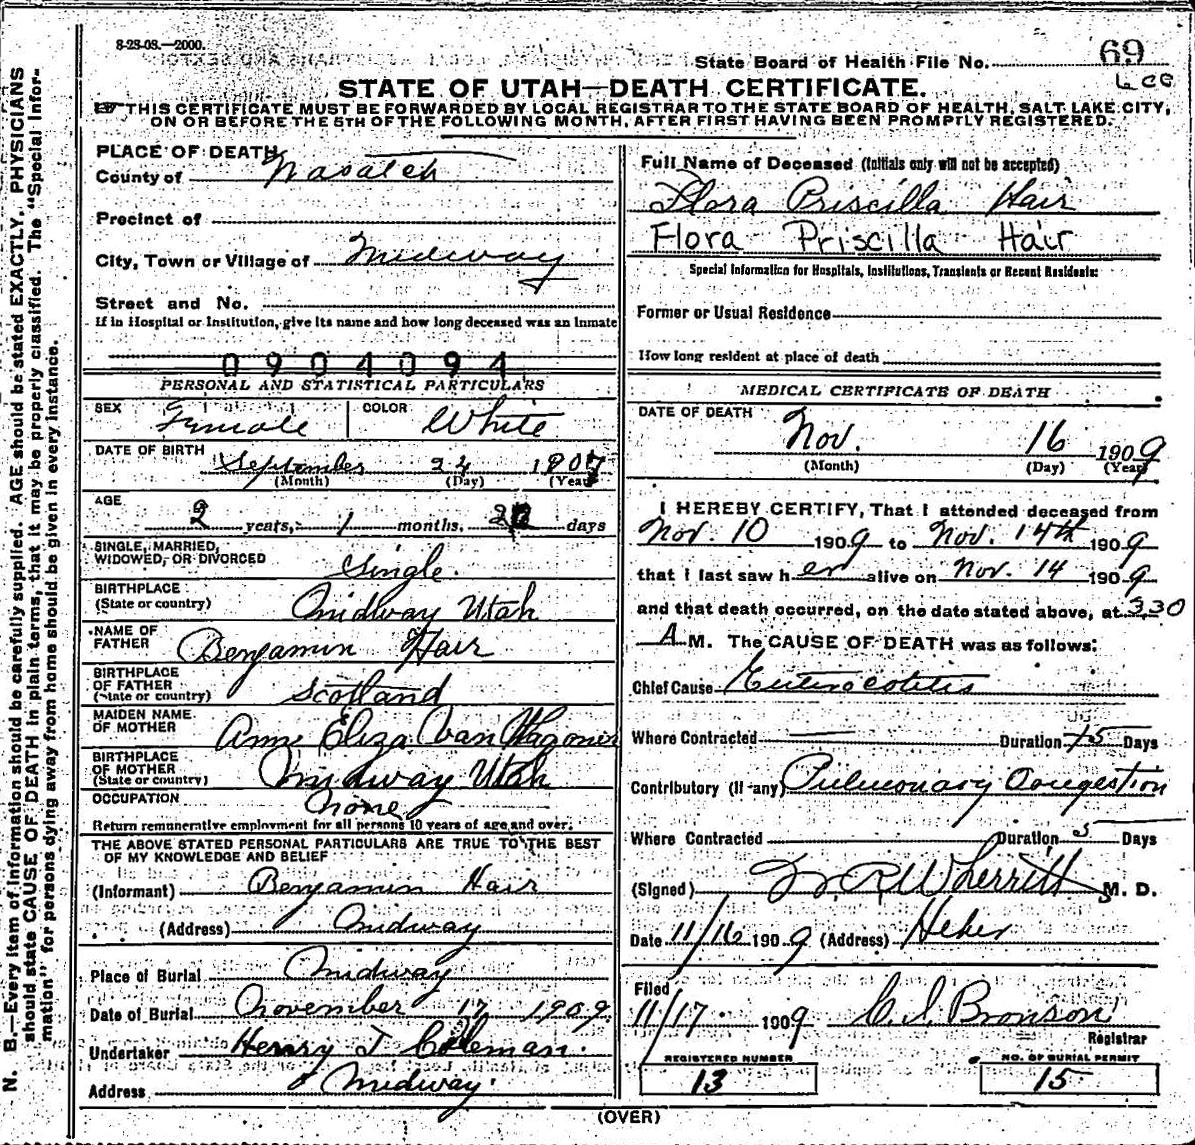 8-28-08.—2000.
State Board of Health File No. 69
STATE OF UTAH—DEATH CERTIFICATE.
THIS CERTIFICATE MUST BE FORWARDED BY LOCAL REGISTRAR TO THE STATE BOARD OF HEALTH, SALT LAKE CITY,
ON OR BEFORE THE 5TH OF THE FOLLOWING MONTH, AFTER FIRST HAVING BEEN PROMPTLY REGISTERED.
PLACE OF DEATH
County of Wasatch
Precinct of
City, Town or Village of Midway
Street and No.
If in Hospital or Institution, give its name and how long deceased was an inmate
0904094
PERSONAL AND STATISTICAL PARTICULARS
SEX Female COLOR White
DATE OF BIRTH September 24 1907
(Month) (Day) (Year)
AGE
2 years, 1 months, days
SINGLE, MARRIED,
WIDOWED, OR DIVORCED Single.
BIRTHPLACE
(State or country) Midway Utah
NAME OF
FATHER Benjamin Hair
BIRTHPLACE
OF FATHER
(State or country) Scotland
MAIDEN NAME
OF MOTHER Ann Eliza Van Wagoner
BIRTHPLACE
OF MOTHER
(State or country) Midway Utah
OCCUPATION none
Return remunerative employment for all persons 10 years of age and over.
THE ABOVE STATED PERSONAL PARTICULARS ARE TRUE TO THE BEST
OF MY KNOWLEDGE AND BELIEF
(Informant) Benjamin Hair
(Address) Midway
Place of Burial Midway
Date of Burial November 17, 1909
Undertaker Henry T Coleman.
Address Midway.
Full Name of Deceased (Initials only will not be accepted)
Flora Priscilla Hair
Flora Priscilla Hair
Special Information for Hospitals, Institutions, Transients or Recent Residents:
Former or Usual Residence
How long resident at place of death
MEDICAL CERTIFICATE OF DEATH
DATE OF DEATH
Nov. 16 1909
(Month) (Day) (Year)
I HEREBY CERTIFY, That I attended deceased from
Nov. 10 1909 to Nov. 14th 1909
that I last saw her alive on Nov. 14 1909
and that death occurred, on the date stated above, at 3.30
A M. The CAUSE OF DEATH was as follows:
Chief Cause Enterocolitis
Where Contracted Duration 5 Days
Contributory (If any) Pulmonary Congestion
Where Contracted Duration 5 Days
(Signed) W. R. Wherritt M. D.
Date 11/16 1909 (Address) Heber
Filed
11/17 1909 C. I. Bronson
Registrar
REGISTERED NUMBER
13
NO. OF BURIAL PERMIT
15
(OVER)
N. B.—Every item of information should be carefully supplied. AGE should be stated EXACTLY. PHYSICIANS
should state CAUSE OF DEATH in plain terms, that it may be properly classified. The "Special Infor-
mation" for persons dying away from home should be given in every instance.